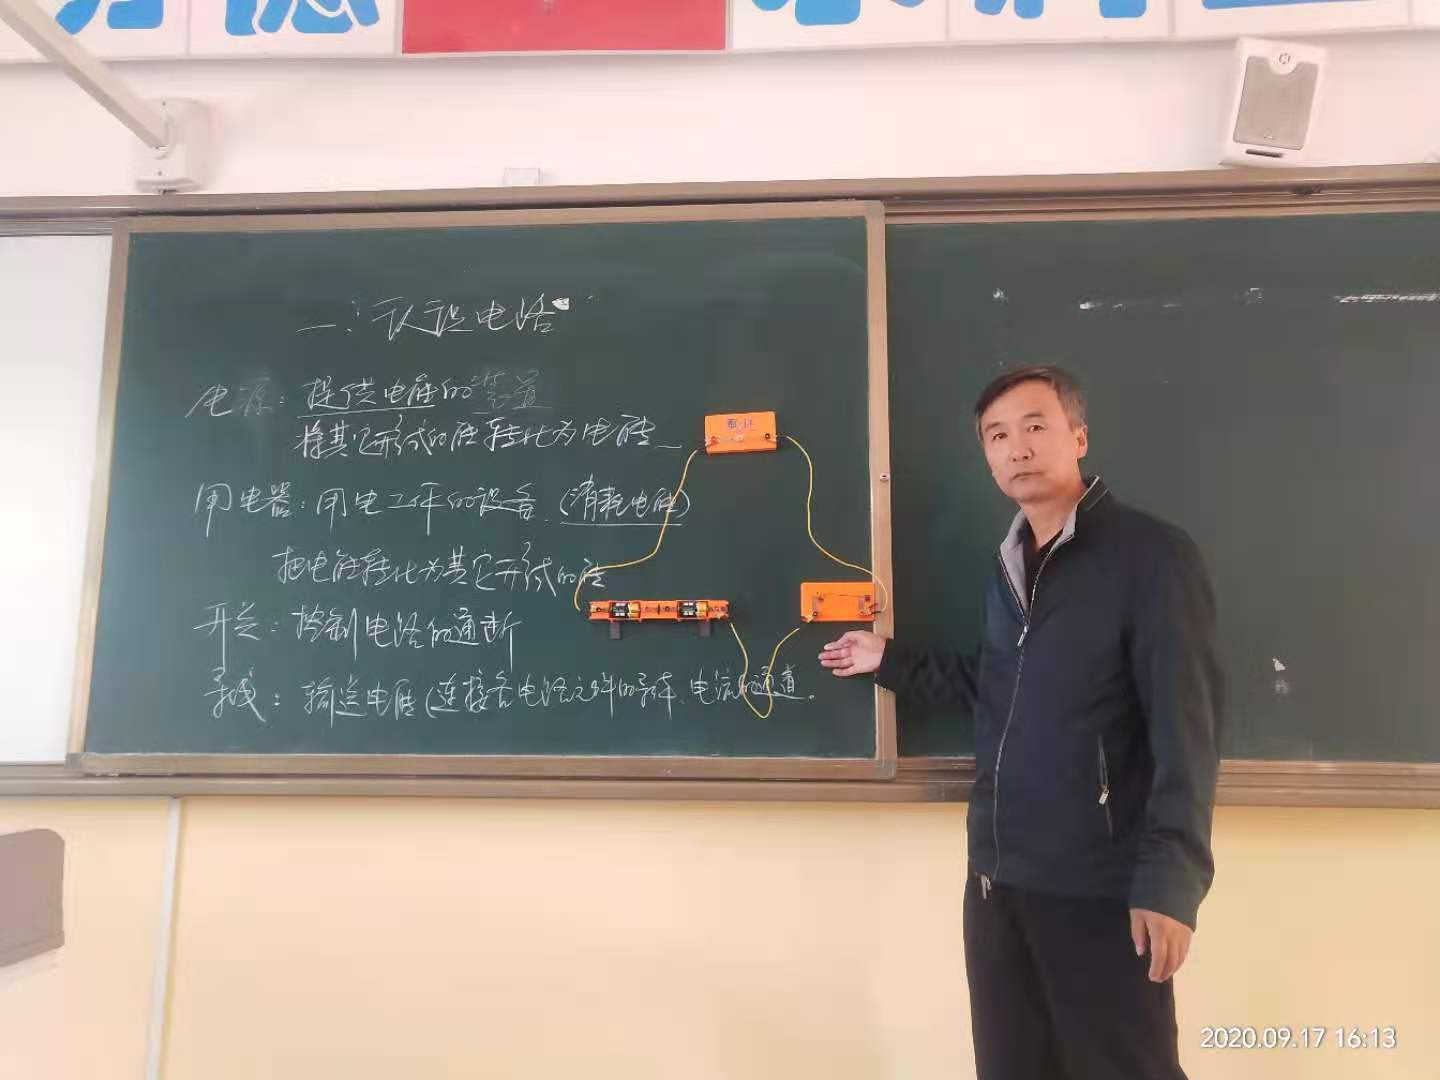 一：认识电路
电源：提供电能的装置
将其它形式的能转化为电能
用电器：用电工作的设备（消耗电能）
把电能转化为其它形式的能
开关：控制电路的通断
导线：输送电能（连接各电路元件的导体、电流的通道。
2020.09.17 16:13